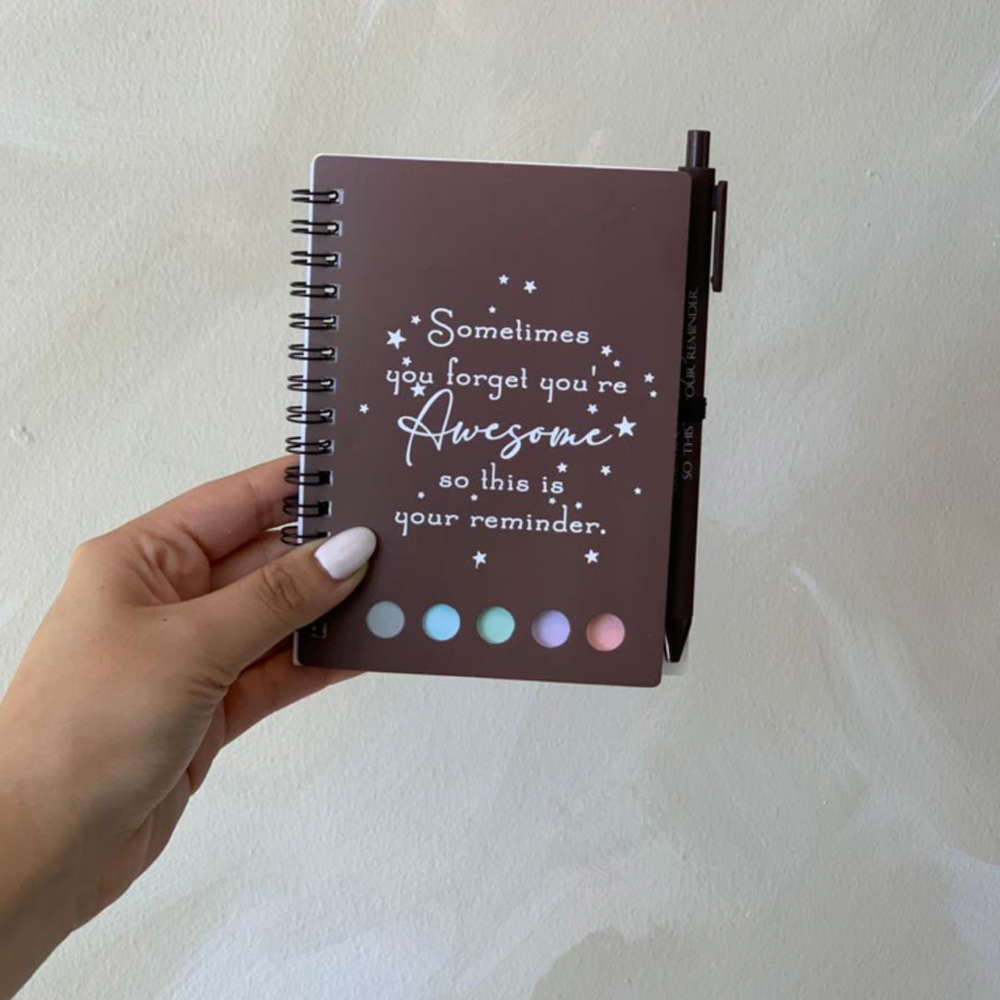 Sometimes
you forget you're
Awesome
so this is
your reminder.
SO THIS
OUR REMINDER.